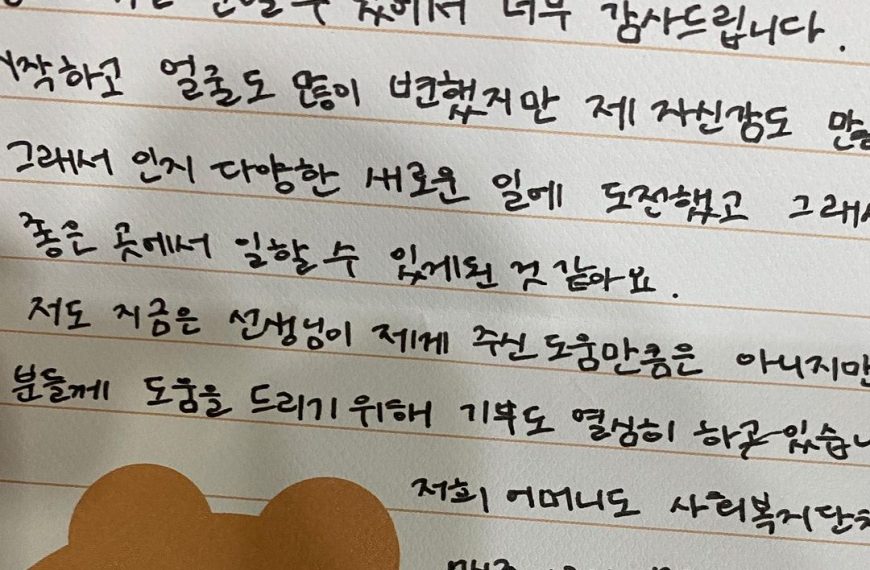 있어서 너무 감사드립니다.
얼굴도 많이 변했지만 제 자신감도
그래서 인지 다양한 새로운 일에 도전했고 그래서
좋은 곳에서 일할 수 있게된 것 같아요.
저도 지금은 선생님이 제게 주신 도움만큼은 아니지만
분들께 도움을 드리기 위해 기부도 열심히 하고있습니
저희 어머니도 사회복지단체